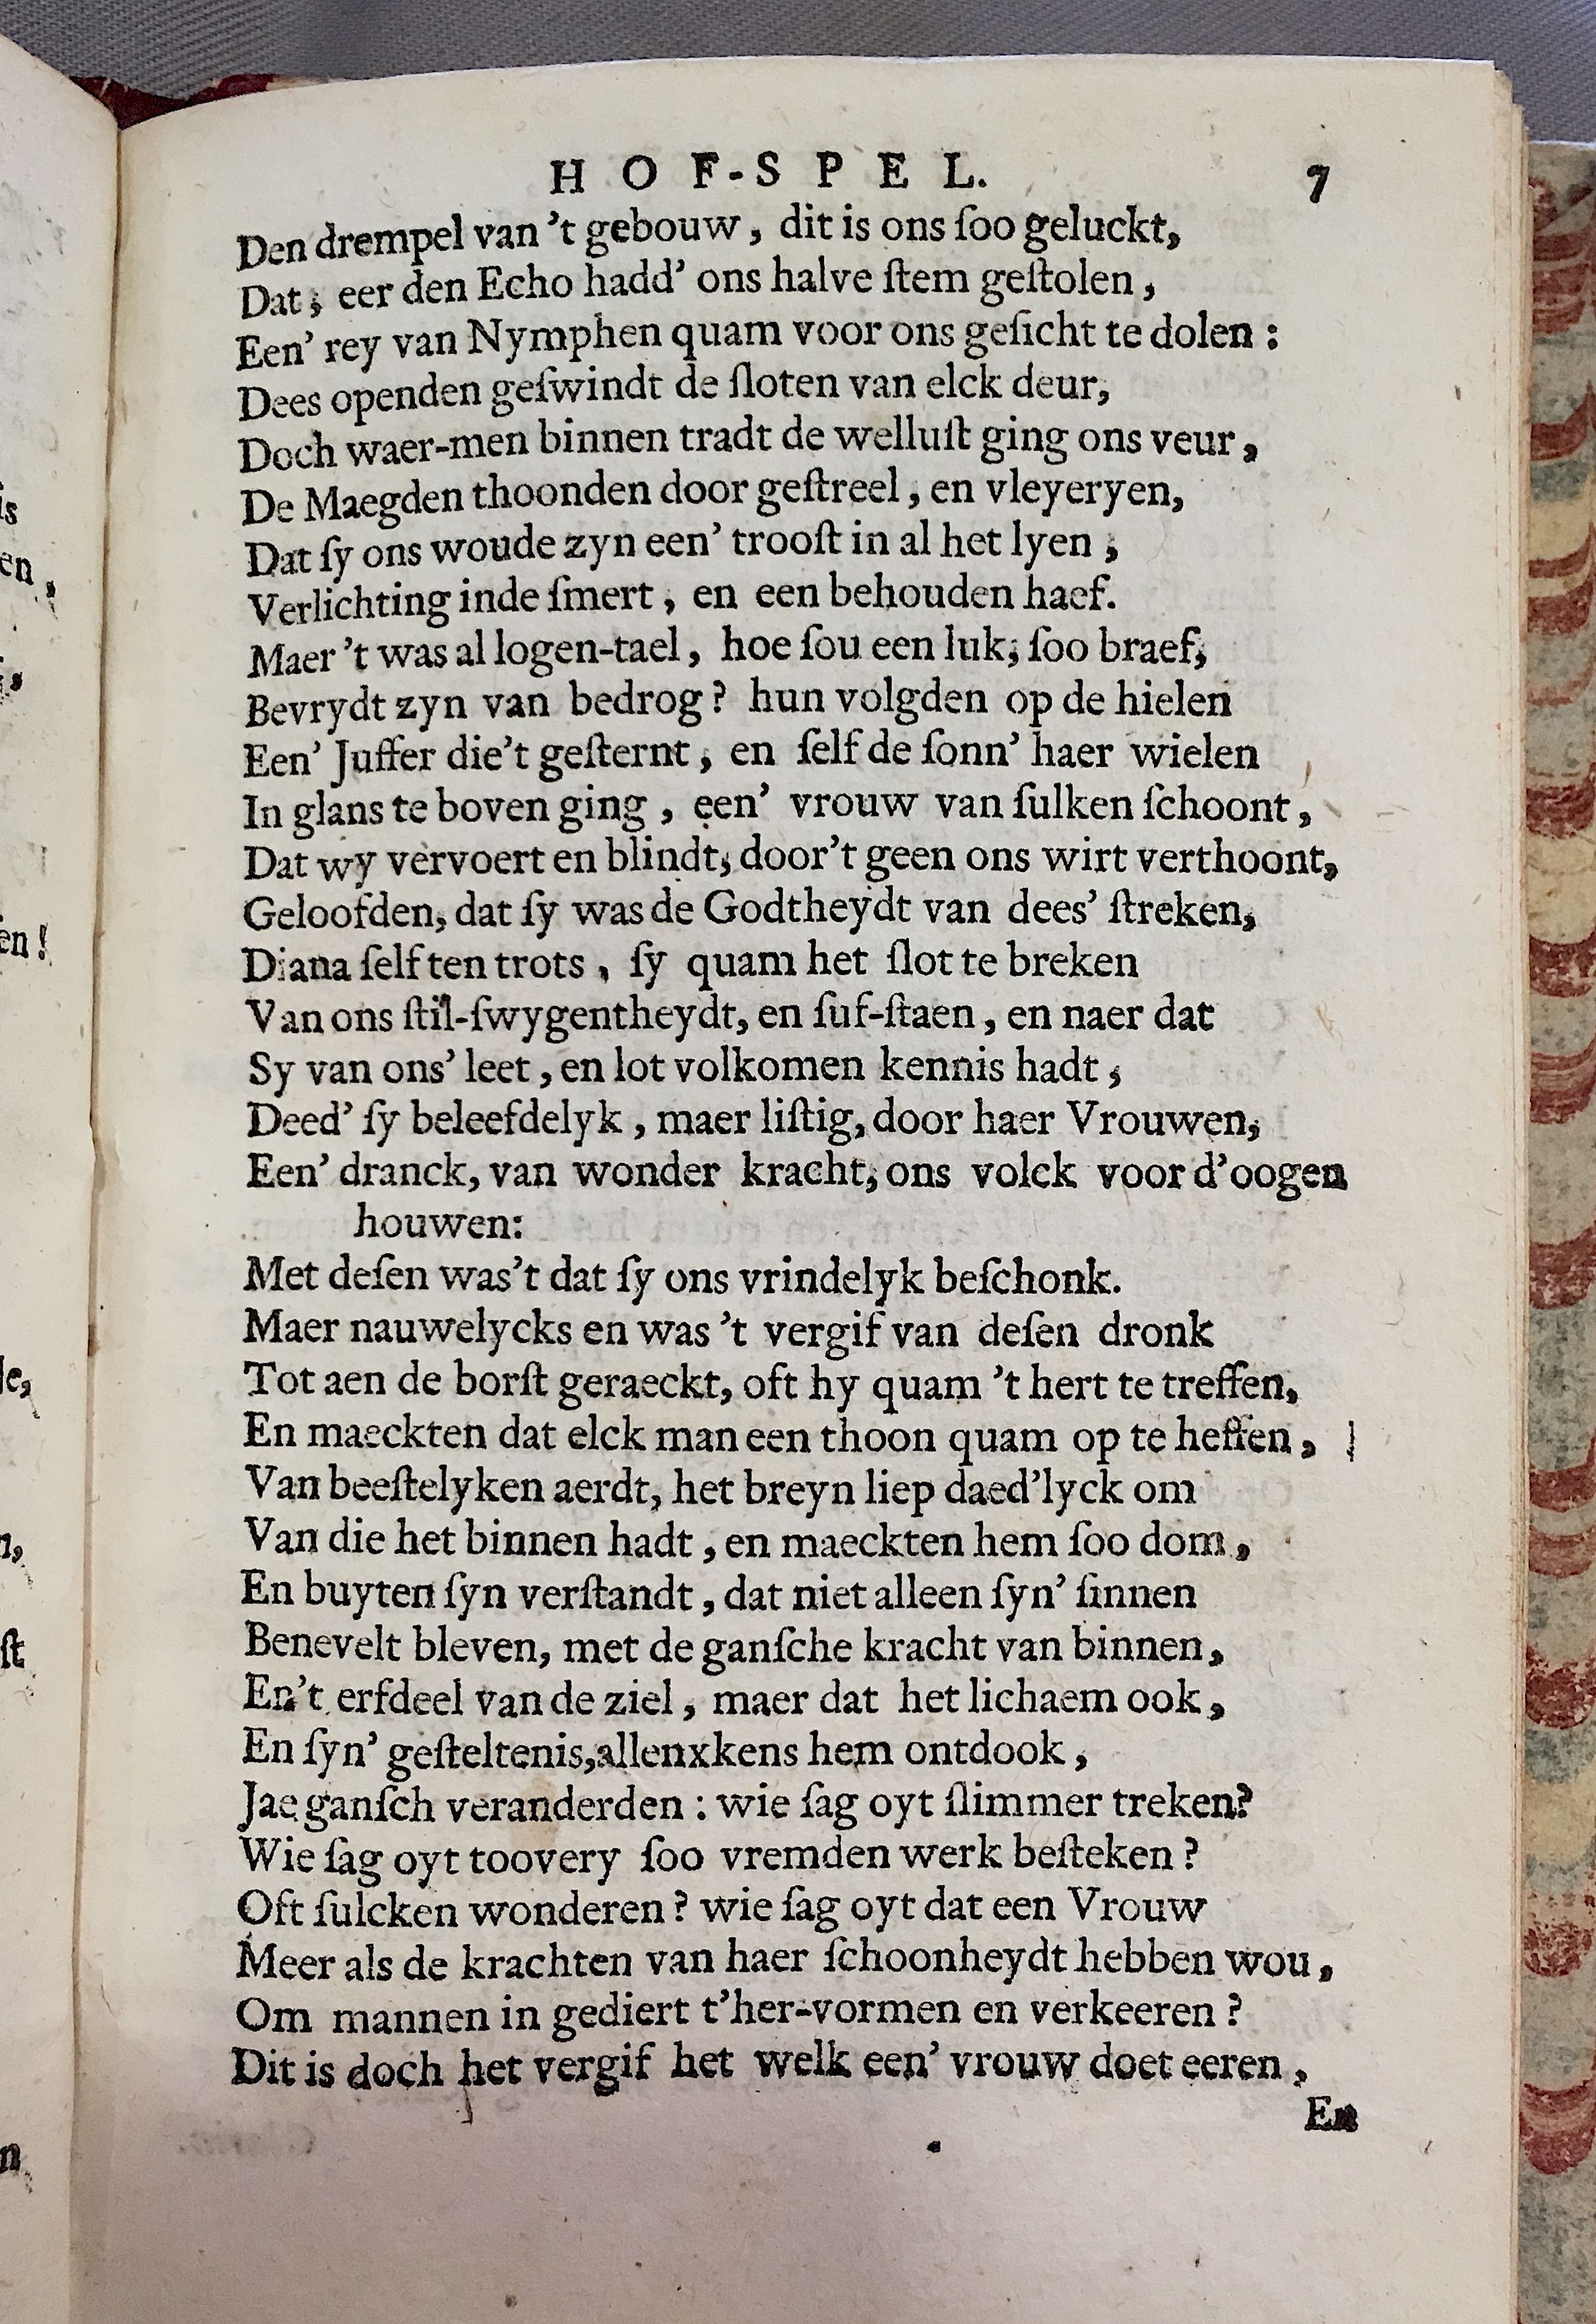 HOF-SPEL. 7
Den drempel van 't gebouw, dit is ons ſoo geluckt,
Dat, eer den Echo hadd' ons halve ſtem geſtolen,
Een' rey van Nymphen quam voor ons geſicht te dolen:
Dees openden geſwindt de ſloten van elck deur,
Doch waer-men binnen tradt de welluſt ging ons veur,
De Maegden thoonden door geſtreel, en vleyeryen,
Dat ſy ons woude zyn een' trooſt in al het lyen,
Verlichting inde ſmert, en een behouden haef.
Maer 't was al logen-tael, hoe ſou een luk, ſoo braef,
Bevrydt zyn van bedrog? hun volgden op de hielen
Een' Juffer die't geſternt, en ſelf de ſonn' haer wielen
In glans te boven ging, een' vrouw van ſulken ſchoont,
Dat wy vervoert en blindt, door't geen ons wirt verthoont,
Geloofden, dat ſy was de Godtheydt van dees' ſtreken,
Diana ſelf ten trots, ſy quam het ſlot te breken
Van ons ſtil-ſwygentheydt, en ſuf-ſtaen, en naer dat
Sy van ons' leet, en lot volkomen kennis hadt,
Deed' ſy beleefdelyk, maer liſtig, door haer Vrouwen,
Een' dranck, van wonder kracht, ons volck voor d'oogen
houwen:
Met deſen was't dat ſy ons vrindelyk beſchonk.
Maer nauwelycks en was 't vergif van deſen dronk
Tot aen de borſt geraeckt, oft hy quam 't hert te treffen,
En maeckten dat elck man een thoon quam op te heffen,
Van beeſtelyken aerdt, het breyn liep daed'lyck om
Van die het binnen hadt, en maeckten hem ſoo dom,
En buyten ſyn verſtandt, dat niet alleen ſyn' ſinnen
Benevelt bleven, met de ganſche kracht van binnen,
En't erfdeel van de ziel, maer dat het lichaem ook,
En ſyn' geſteltenis, allenxkens hem ontdook,
Jae ganſch veranderden: wie ſag oyt ſlimmer treken?
Wie ſag oyt toovery ſoo vremden werk beſteken?
Oft ſulcken wonderen? wie ſag oyt dat een Vrouw
Meer als de krachten van haer ſchoonheydt hebben wou,
Om mannen in gediert t'her-vormen en verkeeren?
Dit is doch het vergif het welk een' vrouw doet eeren,
En